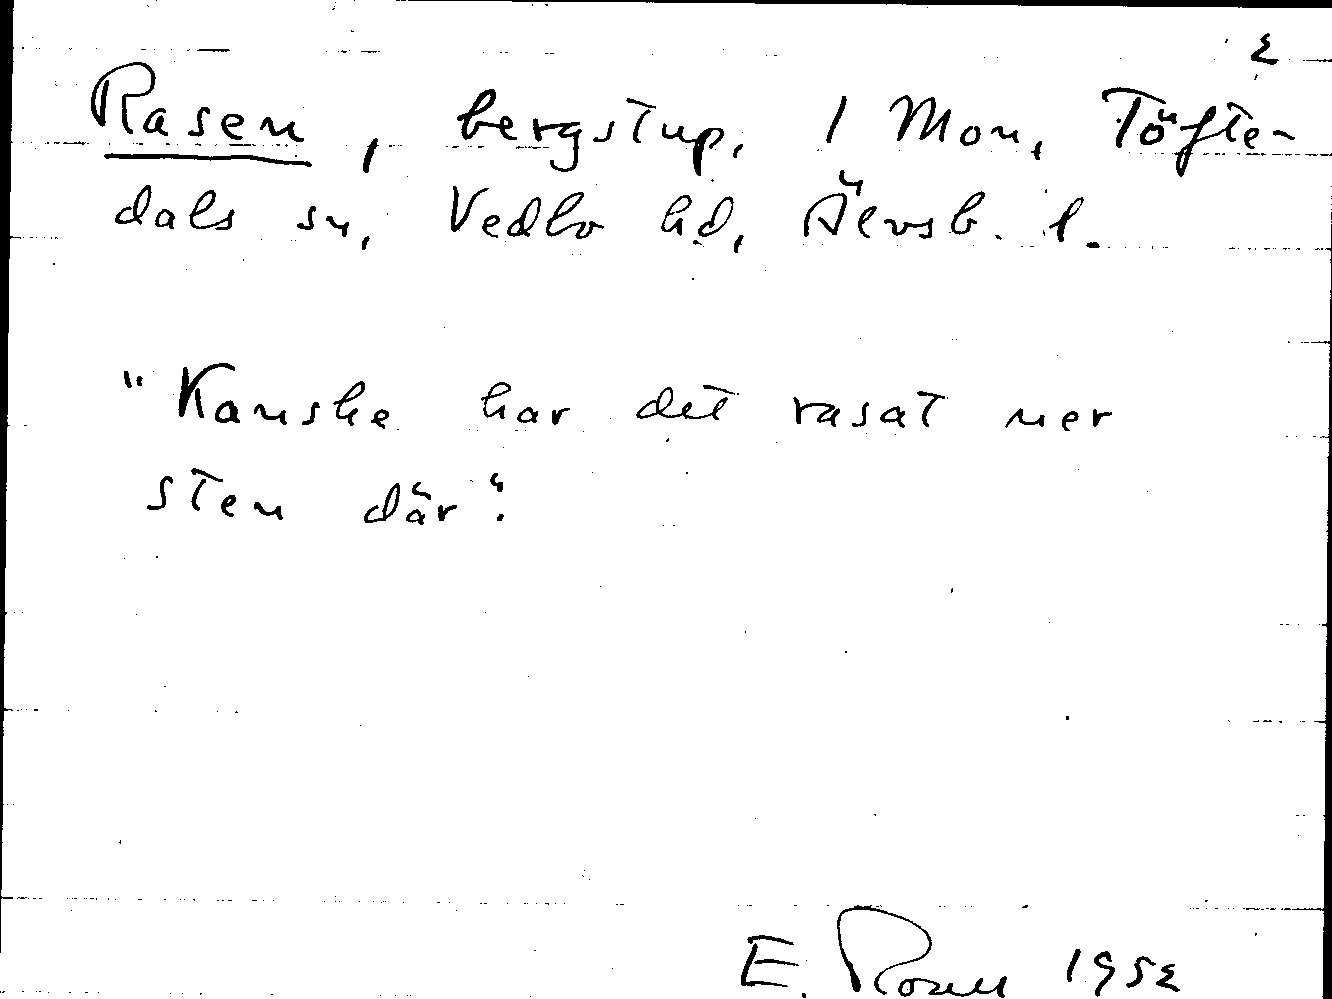 2
Rasen, bergstup, 1 Mon, Töfte-
dals sn, Vedbo hd, Älvsb. l.
"Kanske har det rasat ner
sten där".
E. Rosell 1952